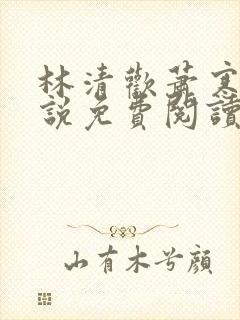 林清歡蕭寒
說免費閱讀
山有木兮顏